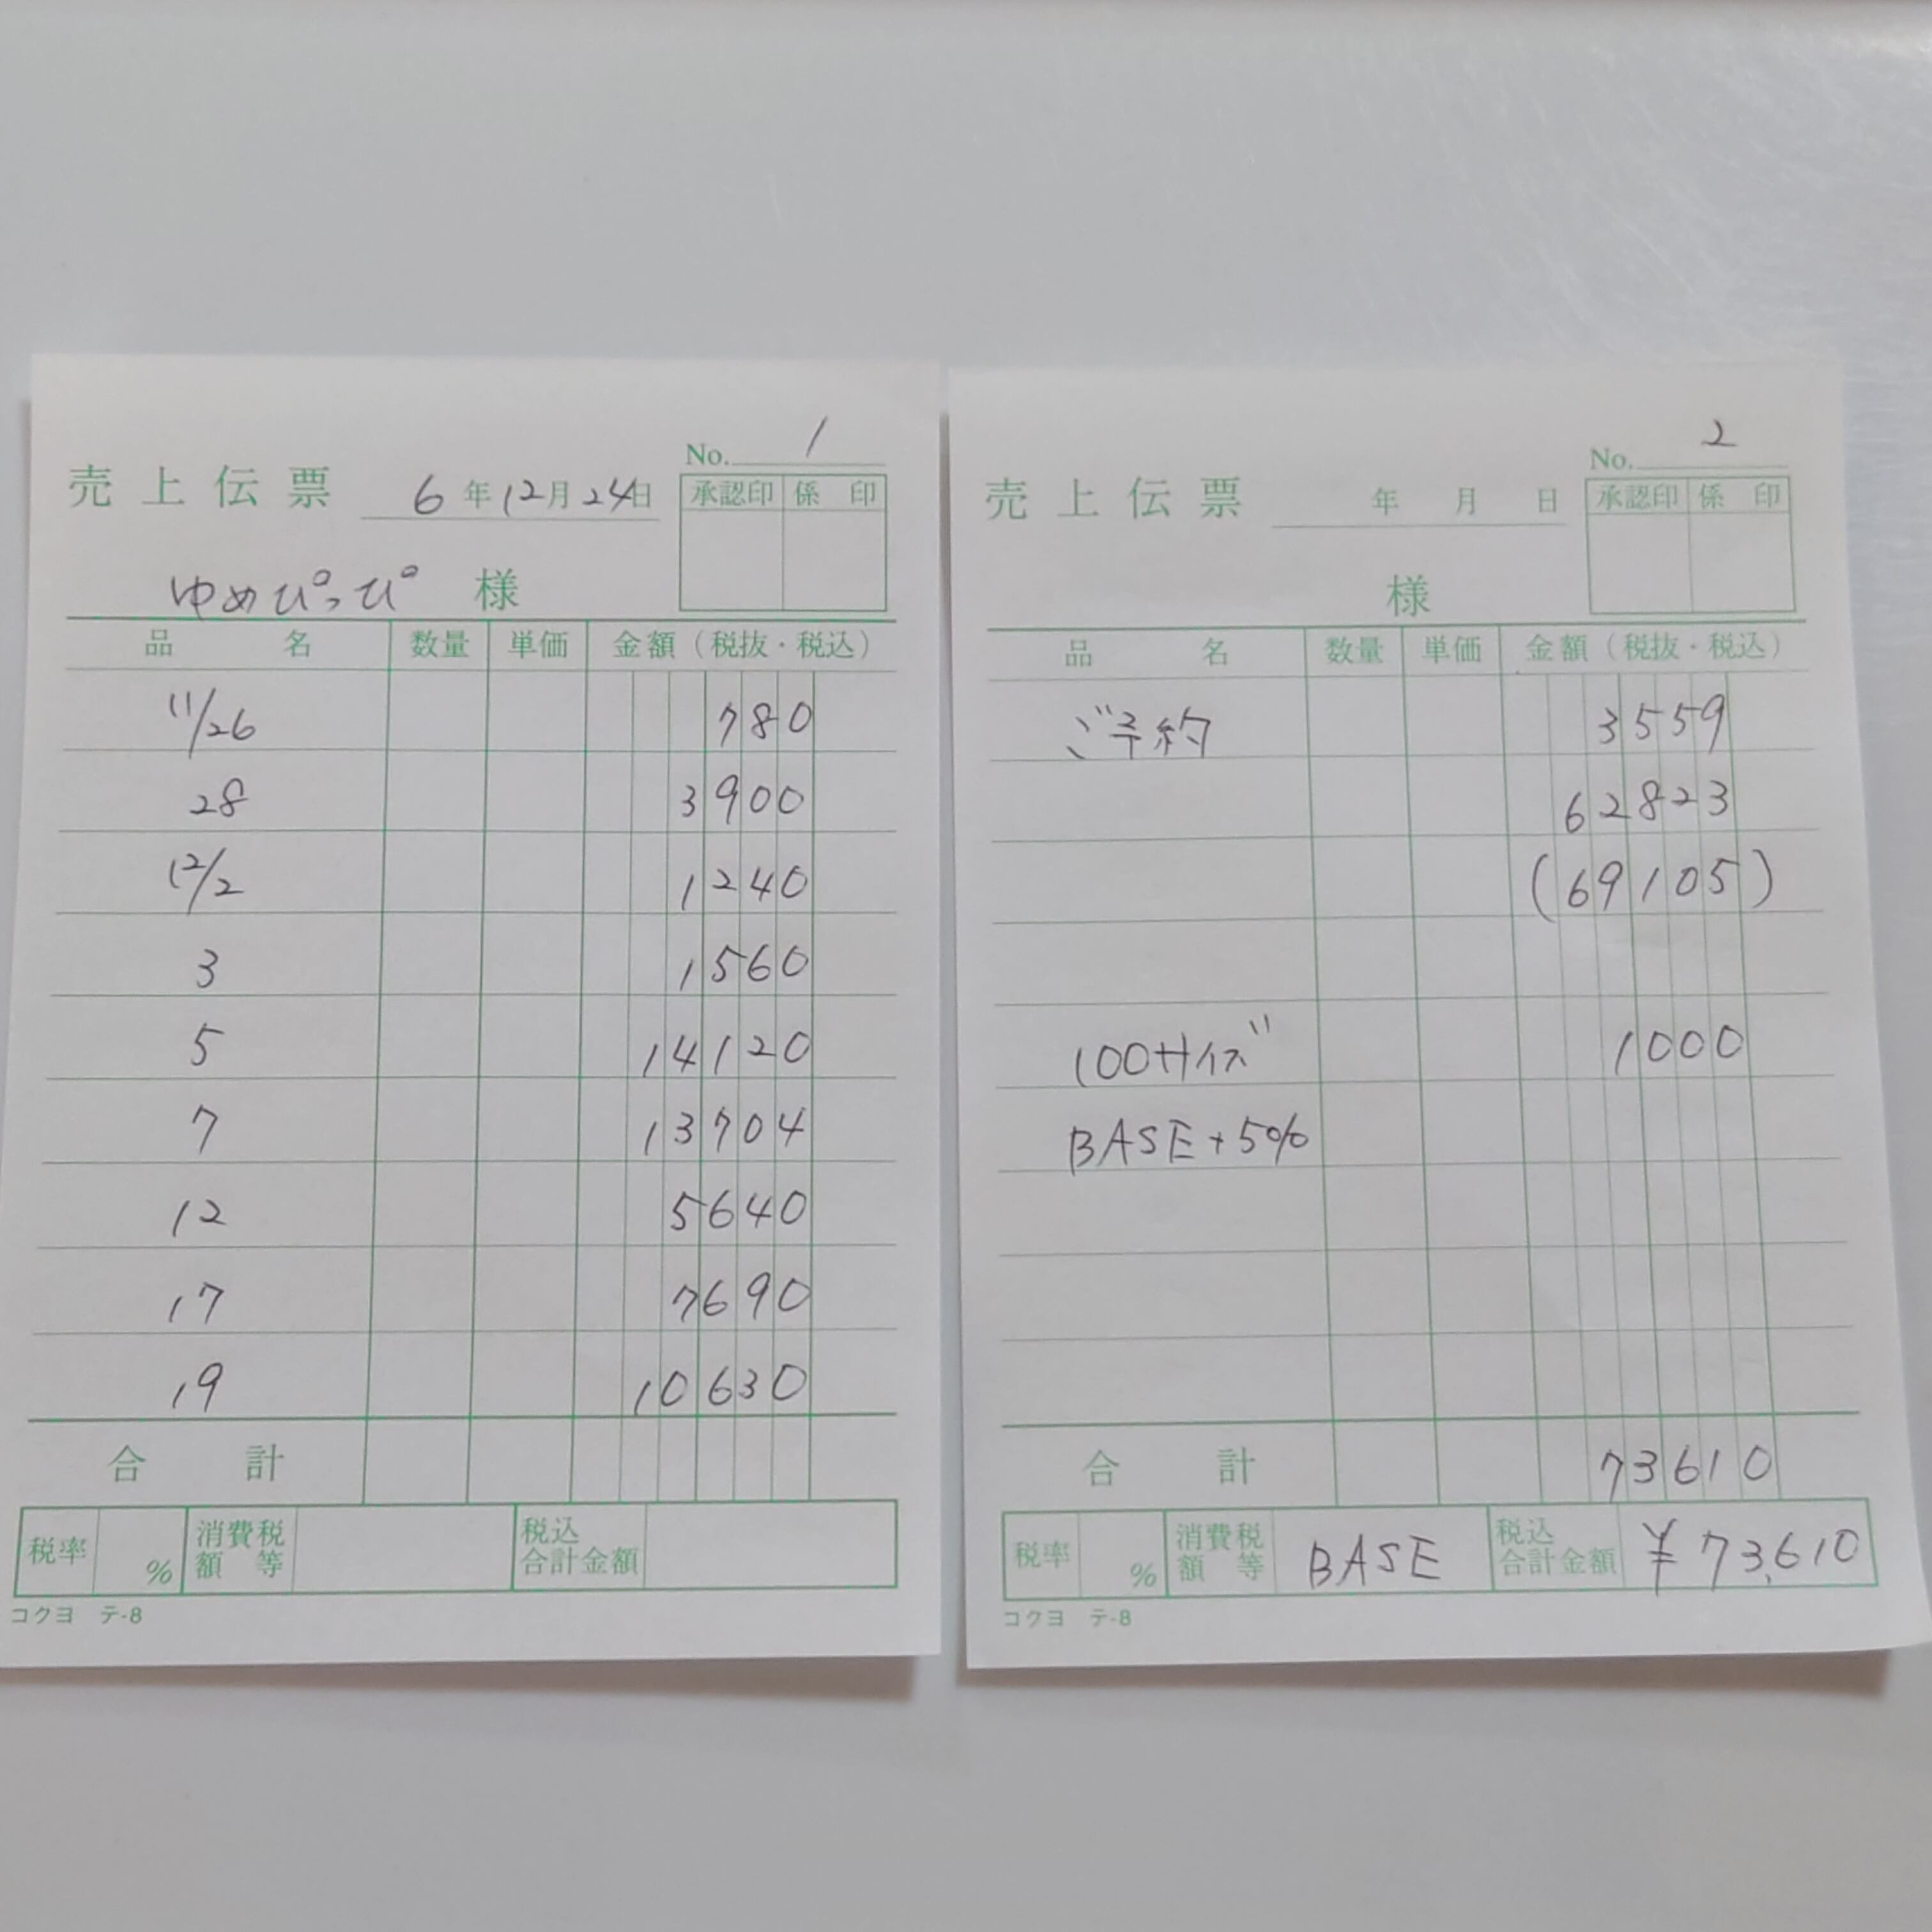 No. 1
売上伝票 6年12月24日
承認印 係印
ゆめぴっぴ 様
品名 数量 単価 金額(税抜・税込)
11/26 780
28 3900
12/2 1240
3 1560
5 14120
7 13704
12 5640
17 7690
19 10630
合計
税率 % 消費税額等 税込合計金額
コクヨ テ-8
No. 2
売上伝票 年 月 日
承認印 係印
様
品名 数量 単価 金額(税抜・税込)
ご予約 3559
62823
(69105)
100サイズ 1000
BASE+5%
合計 73610
税率 % 消費税額等 BASE 税込合計金額 ¥73,610
コクヨ テ-8